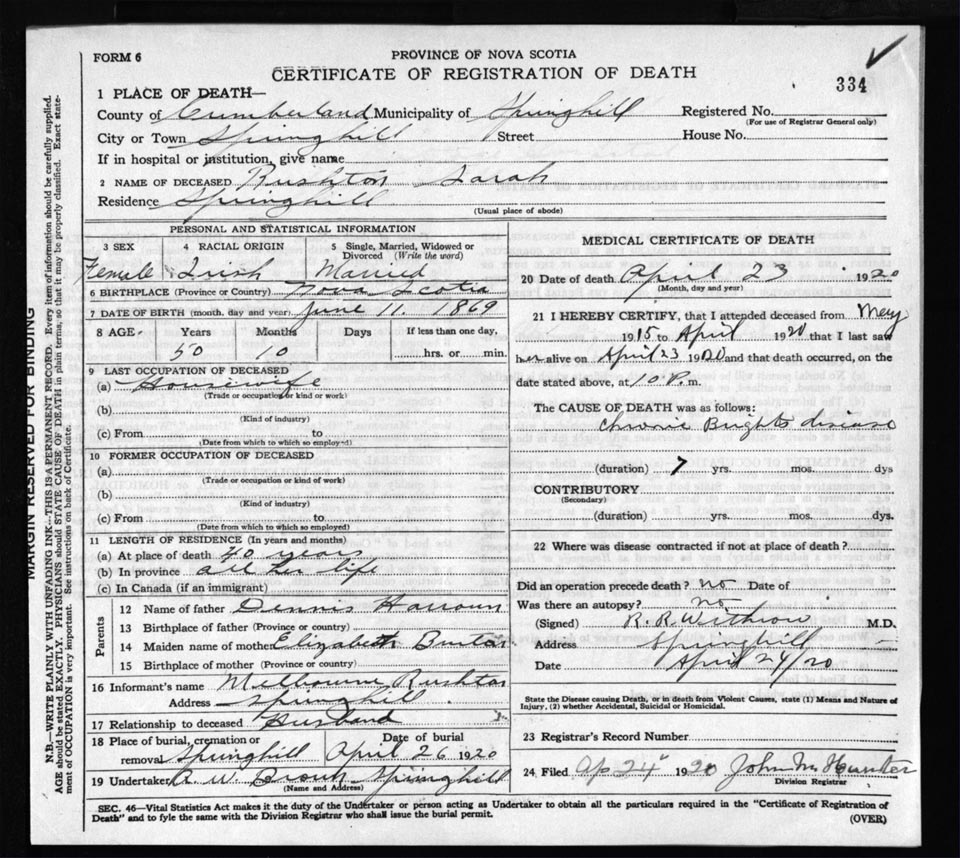 FORM 6
PROVINCE OF NOVA SCOTIA
CERTIFICATE OF REGISTRATION OF DEATH
334
1 PLACE OF DEATH—
County of Cumberland Municipality of Springhill Registered No.
(For use of Registrar General only)
City or Town Springhill Street House No.
If in hospital or institution, give name
2 NAME OF DECEASED Rushton Sarah
Residence Springhill
(Usual place of abode)
PERSONAL AND STATISTICAL INFORMATION
3 SEX 4 RACIAL ORIGIN 5 Single, Married, Widowed or Divorced (Write the word)
Female Irish Married
6 BIRTHPLACE (Province or Country) Nova Scotia
7 DATE OF BIRTH (month, day and year) June 11. 1869
8 AGE Years Months Days If less than one day,
50 10 hrs. or min.
9 LAST OCCUPATION OF DECEASED
(a) Housewife
(Trade or occupation or kind or work)
(b)
(Kind of industry)
(c) From to
(Date from which to which so employed)
10 FORMER OCCUPATION OF DECEASED
(a)
(Trade or occupation or kind of work)
(b)
(Kind of industry)
(c) From to
(Date from which to which so employed)
11 LENGTH OF RESIDENCE (In years and months)
(a) At place of death 40 years
(b) In province all her life
(c) In Canada (if an immigrant)
Parents
12 Name of father Dennis
13 Birthplace of father (Province or country)
14 Maiden name of mother Elizabeth
15 Birthplace of mother (Province or country)
16 Informant's name Melbourne Rushton
Address Springhill
17 Relationship to deceased Husband
18 Place of burial, cremation or removal Springhill Date of burial April 26 1920
19 Undertaker A W Brown Springhill
(Name and Address)
MEDICAL CERTIFICATE OF DEATH
20 Date of death April 23 1920
(Month, day and year)
21 I HEREBY CERTIFY, that I attended deceased from May
1915 to April 1920 that I last saw
her alive on April 23 1920 and that death occurred, on the
date stated above, at 10 P. m.
The CAUSE OF DEATH was as follows:
Chronic Brights disease
(duration) 7 yrs. mos. dys
CONTRIBUTORY
(Secondary)
(duration) yrs. mos. dys.
22 Where was disease contracted if not at place of death?
Did an operation precede death? no Date of
Was there an autopsy? no
(Signed) R. R. Withrow M.D.
Address Springhill
Date April 24/20
State the Disease causing Death, or in death from Violent Causes, state (1) Means and Nature of
Injury, (2) whether Accidental, Suicidal or Homicidal.
23 Registrar's Record Number
24 Filed Ap 24 1920 John M Hunter
Division Registrar
SEC. 46—Vital Statistics Act makes it the duty of the Undertaker or person acting as Undertaker to obtain all the particulars required in the "Certificate of Registration of
Death" and to fyle the same with the Division Registrar who shall issue the burial permit.
(OVER)
MARGIN RESERVED FOR BINDING
N.B.—WRITE PLAINLY WITH UNFADING INK—THIS IS A PERMANENT RECORD. Every item of information should be carefully supplied.
AGE should be stated EXACTLY. PHYSICIANS should STATE CAUSE OF DEATH in plain terms, so that it may be properly classified. Exact state-
ment of OCCUPATION is very important. See instructions on back of Certificate.